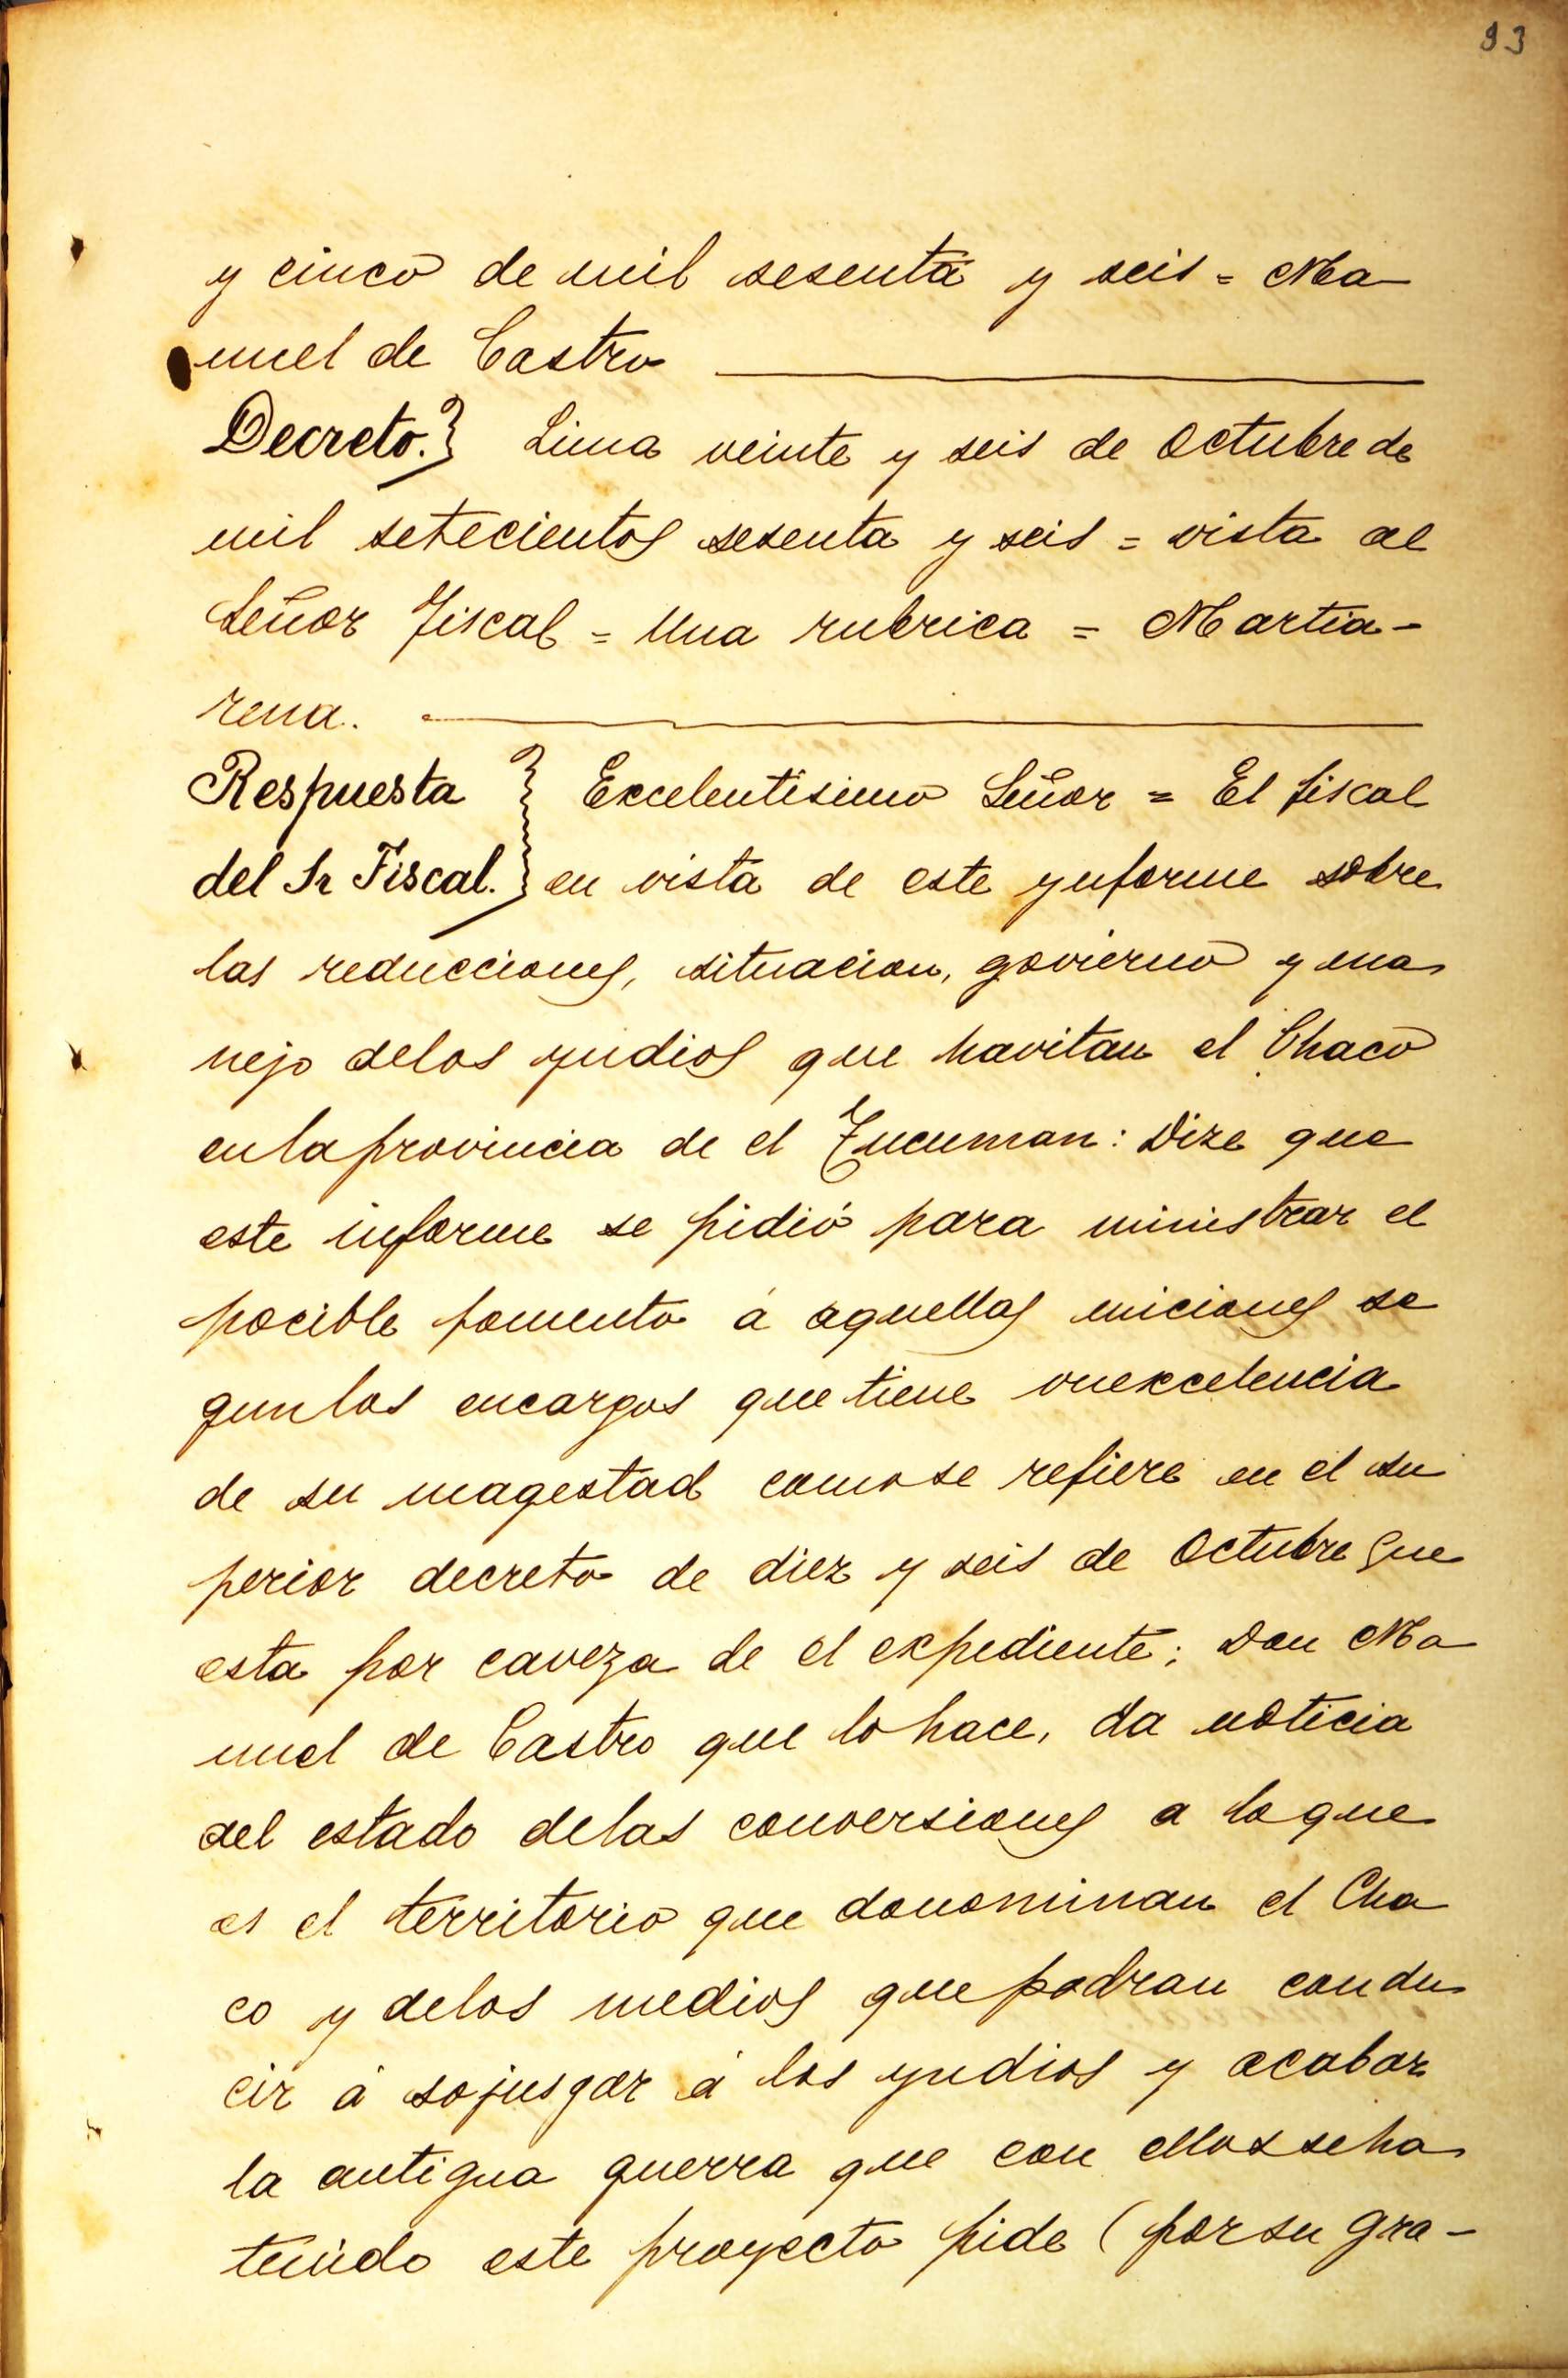 93
y cinco de mil sesenta y seis = Ma
nuel de Castro
Decreto.} Lima veinte y seis de Octubre de
mil setecientos sesenta y seis = vista al
Señor Fiscal = Una rubrica = Martia-
rena.
Respuesta } Excelentisimo Señor = El fiscal
del Sr Fiscal. } en vista de este ynforme sobre
las reducciones, situacion, govierno y ma
nejo delos yndios que havitan el Chaco
enlaprovincia de el Tucuman: Dize que
este informe se pidió para ministrar el
pocible fomento á aquellas miciones se
gunlos encargos quetiene vuexcelencia
de su magestad comose refiere en el su
perior decreto de diez y seis de Octubre que
esta por caveza de el expediente; Don Ma
nuel de Castro que lo hace, da noticia
del estado delas conversiones a loque
es el territorio que donominan el Cha
co y delos medios quepodran condu
cir á sojusgar á los yndios y acabar
la antigua guerra que con ellosseha
tenido este proyecto pide (porsu gra-